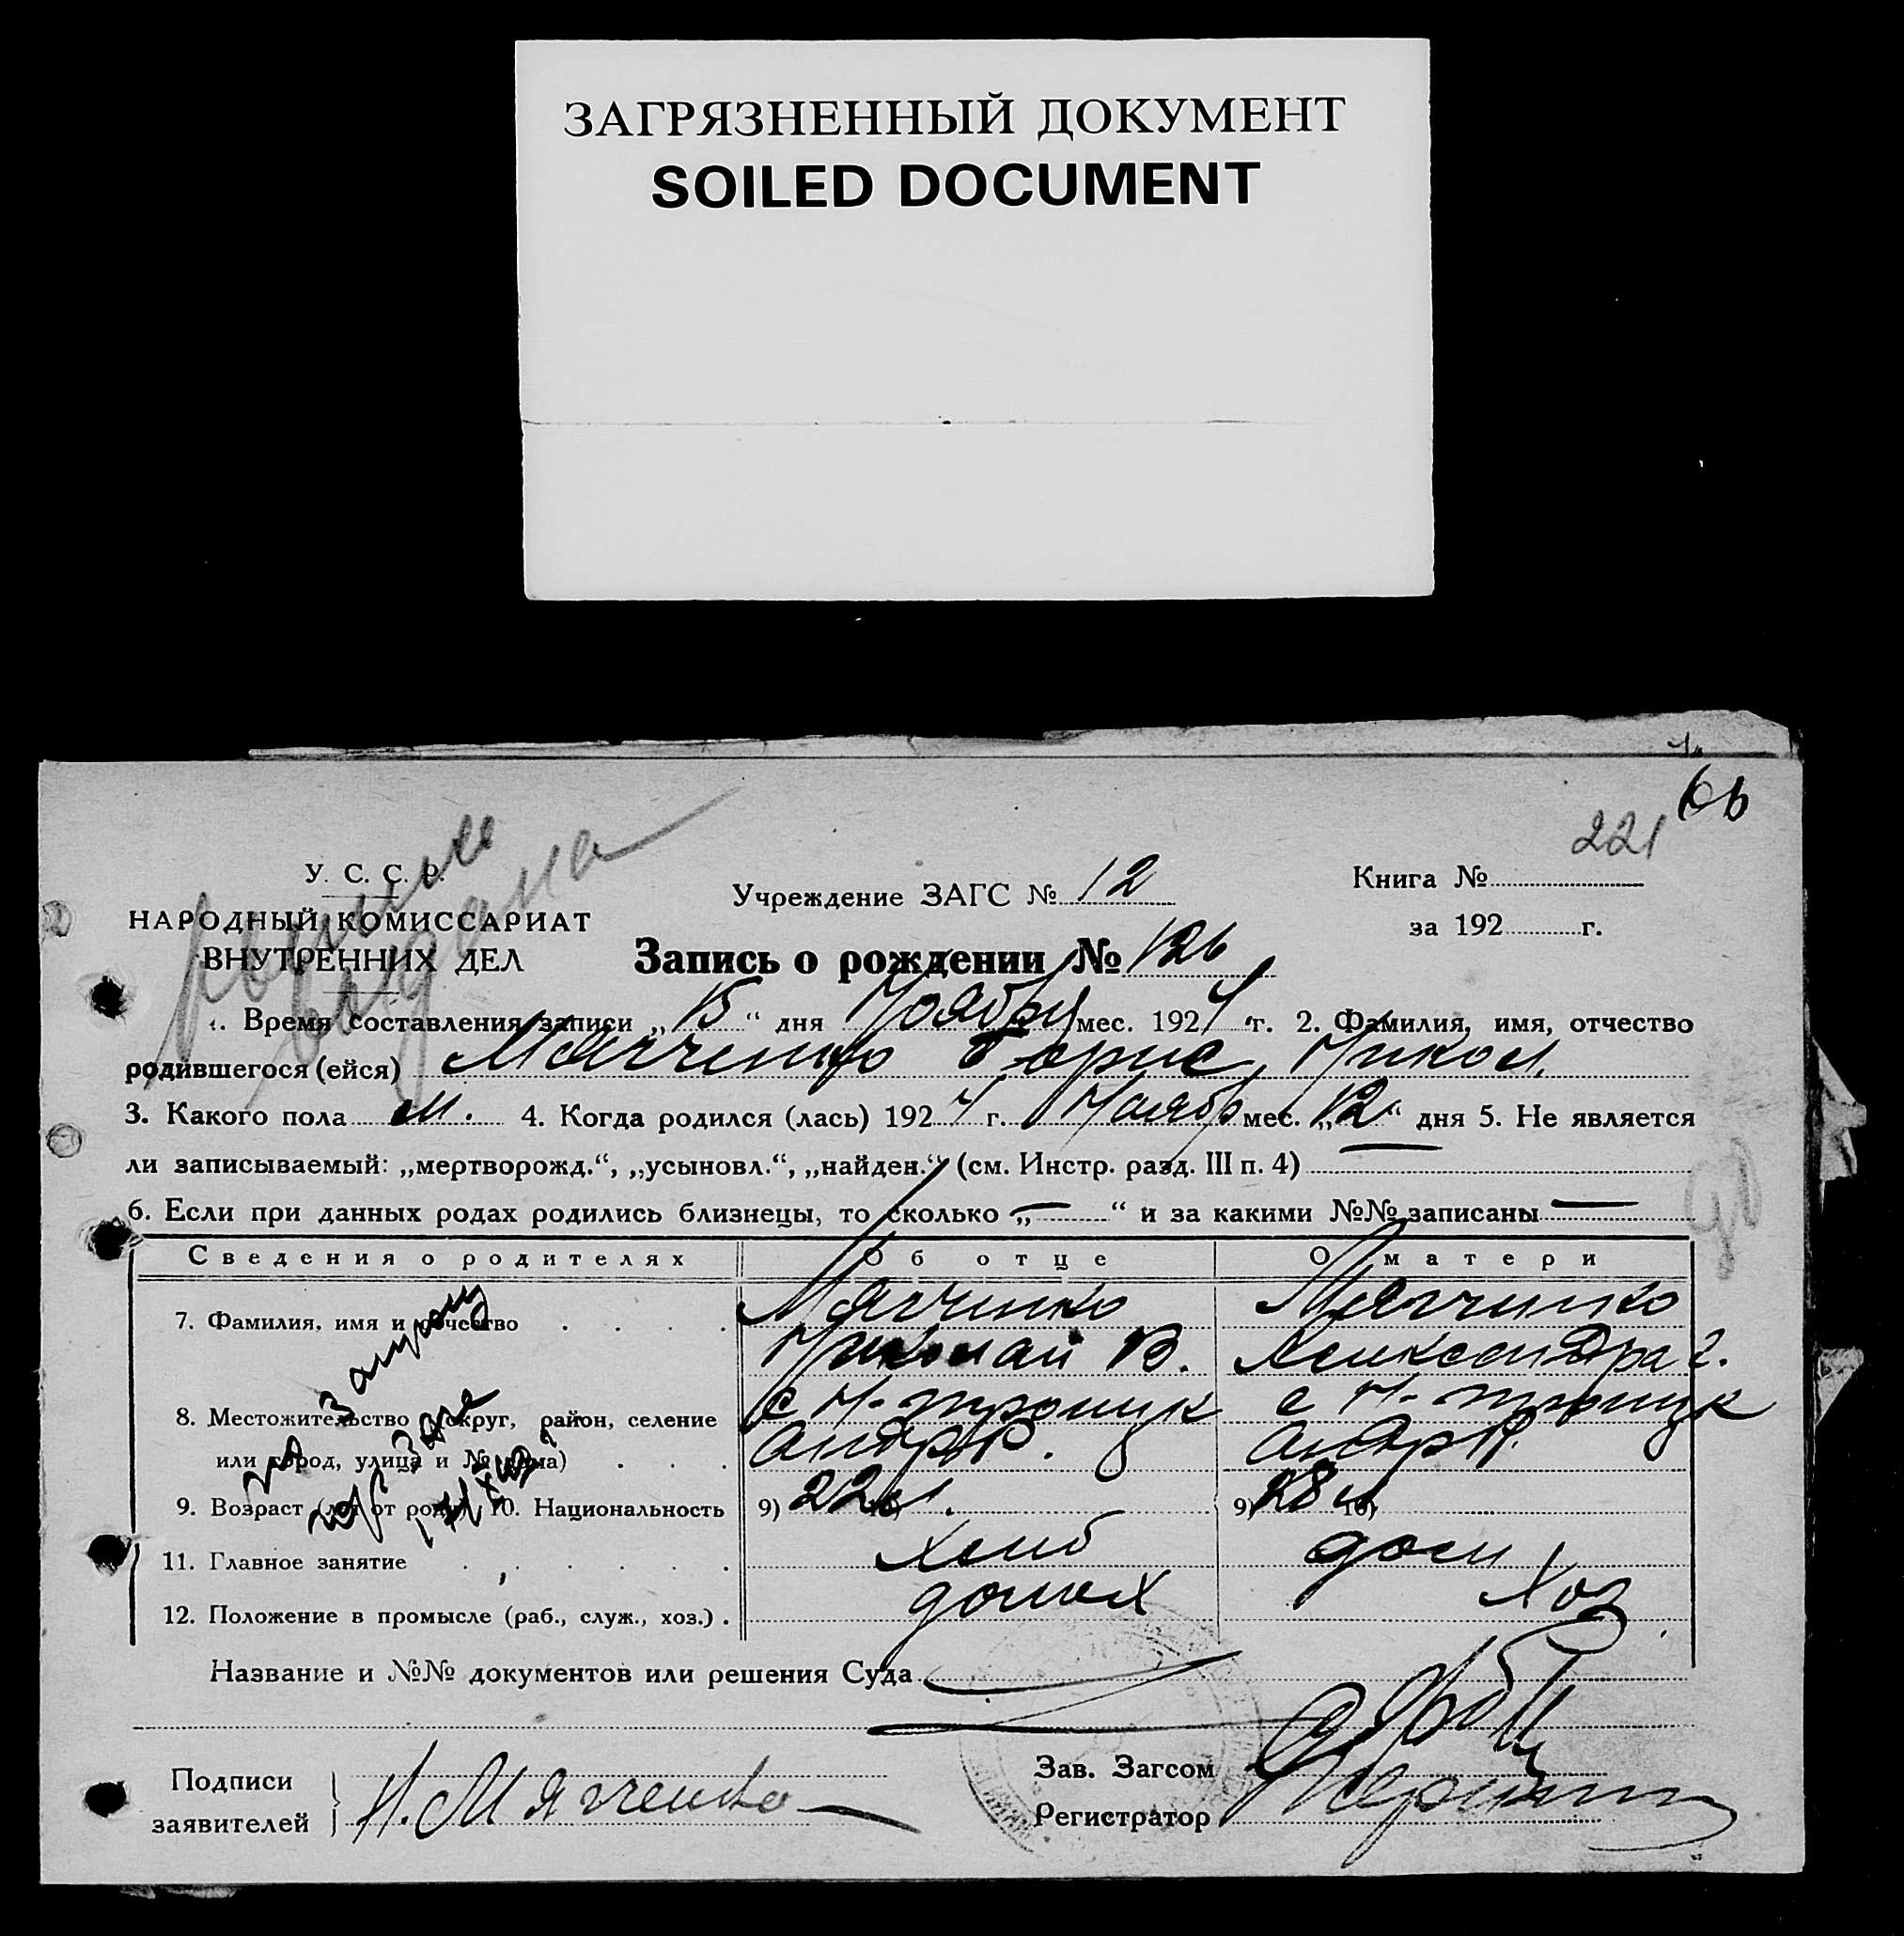 ЗАГРЯЗНЕННЫЙ ДОКУМЕНТ
SOILED DOCUMENT
221
У. С. С. Р.
НАРОДНЫЙ КОМИССАРИАТ
ВНУТРЕННИХ ДЕЛ
Учреждение ЗАГС № 12
Книга №
за 192 г.
Запись о рождении № 126
1. Время составления записи „15“ дня Ноября мес. 1924 г. 2. Фамилия, имя, отчество
родившегося (ейся) Мягченко Борис Никол.
3. Какого пола м. 4. Когда родился (лась) 1924 г. Ноябр мес. „12“ дня 5. Не является
ли записываемый: „мертворожд.“, „усыновл.“, „найден.“ (см. Инстр. разд. III п. 4) —
6. Если при данных родах родились близнецы, то сколько „—“ и за какими №№ записаны —
Сведения о родителях Об отце О матери
7. Фамилия, имя и отчество Мягченко Мягченко
Николай В. Александра
8. Местожительство (округ, район, селение с Н-троицк с Н-троицк
или город, улица и № дома) Андр Р. Андр Р.
9. Возраст (лет от роду) 10. Национальность 9) 22 л. 10) 9) 28 л 10)
11. Главное занятие Хлеб дом
12. Положение в промысле (раб., служ., хоз.) домох Хоз
Название и №№ документов или решения Суда
Подписи
заявителей Н. Мягченко
Зав. Загсом
Регистратор